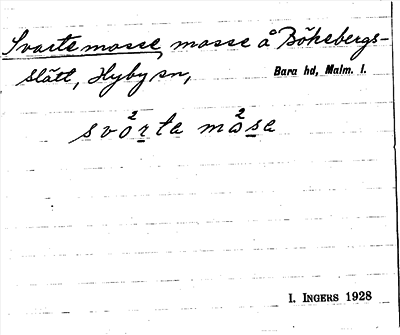 Svarte mosse, mosse å Bökebergs-
slätt, Hyby sn, Bara hd, Malm. l.
svo²rta mo²sa
I. INGERS 1928